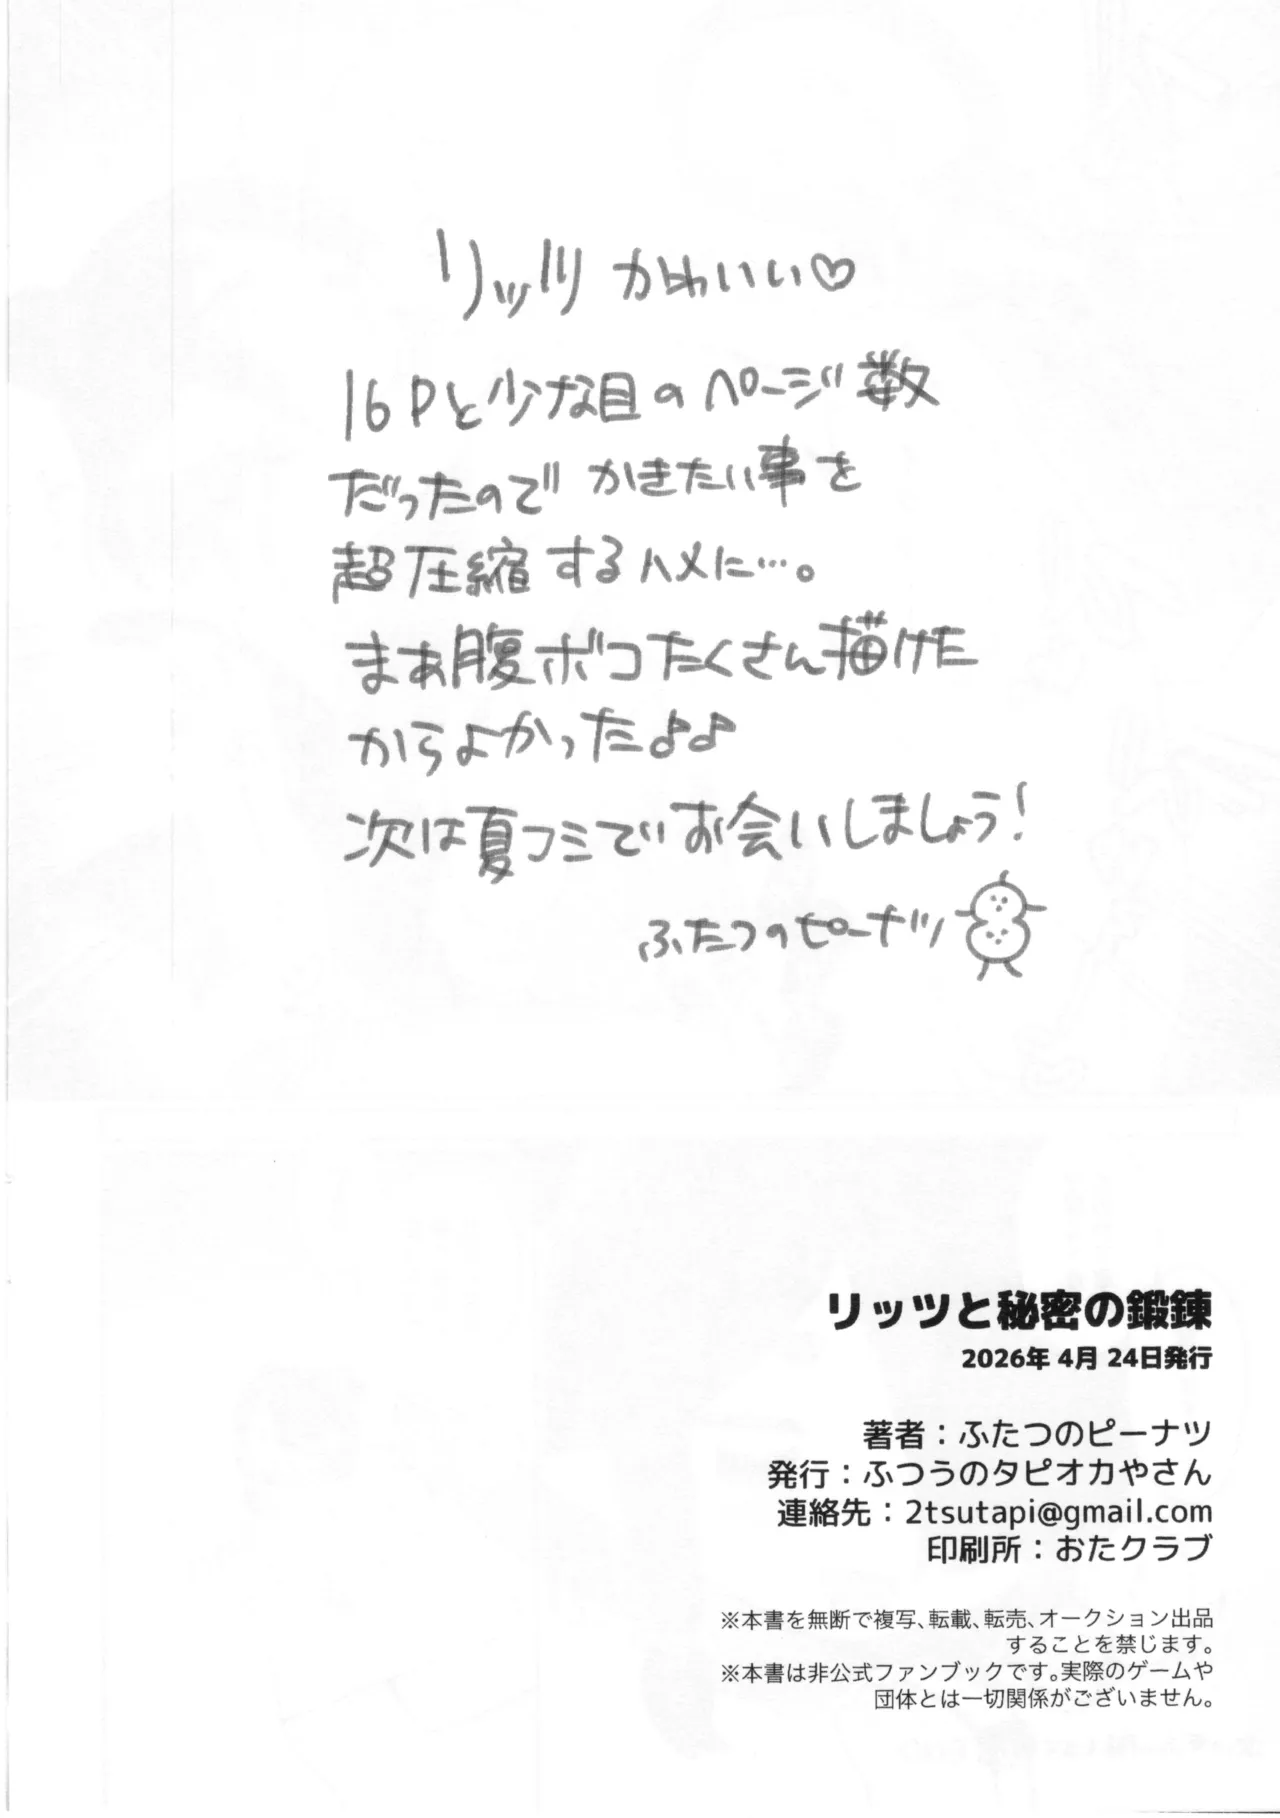 リッツ かわいい♡
16Pと少な目のページ数
だったので かきたい事を
超圧縮するハメに…。
まあ腹ボコたくさん描けた
からよかった♪♪
次は夏コミでお会いしましょう！
ふたつのピーナツ
リッツと秘密の鍛錬
2026年 4月 24日発行
著者：ふたつのピーナツ
発行：ふつうのタピオカやさん
連絡先：2tsutapi@gmail.com
印刷所：おたクラブ
※本書を無断で複写、転載、転売、オークション出品
することを禁じます。
※本書は非公式ファンブックです。実際のゲームや
団体とは一切関係がございません。